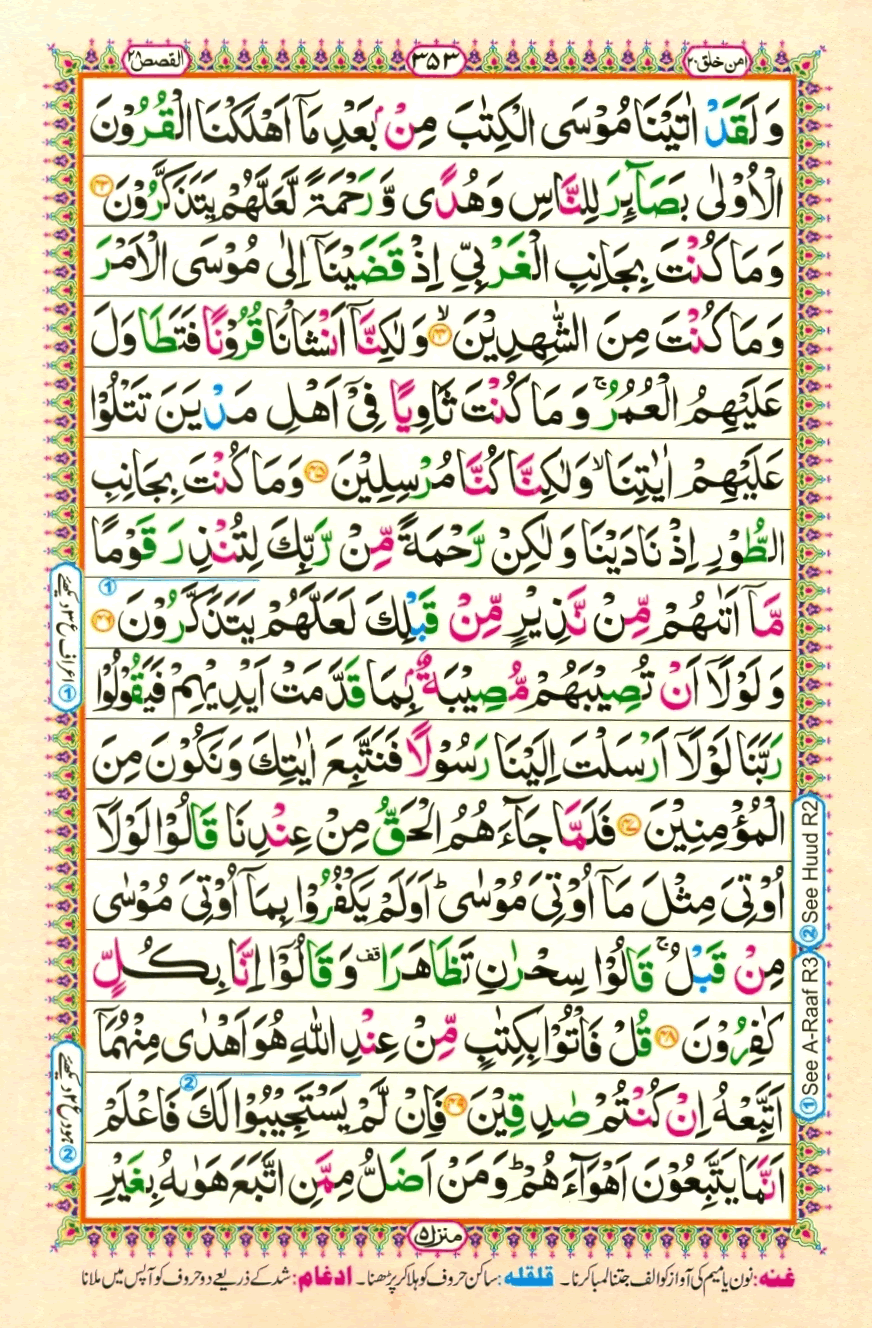 امن خلق ۲۰
۳۵۳
القصص ۲۸
وَلَقَدْ اٰتَيْنَا مُوْسَى الْكِتٰبَ مِنْۢ بَعْدِ مَاۤ اَهْلَكْنَا الْقُرُوْنَ
الْاُوْلٰى بَصَآئِرَ لِلنَّاسِ وَهُدًى وَّرَحْمَةً لَّعَلَّهُمْ يَتَذَكَّرُوْنَ ۴۳
وَمَا كُنْتَ بِجَانِبِ الْغَرْبِيِّ اِذْ قَضَيْنَاۤ اِلٰى مُوْسَى الْاَمْرَ
وَمَا كُنْتَ مِنَ الشّٰهِدِيْنَ ۙ ۴۴ وَلٰكِنَّاۤ اَنْشَاْنَا قُرُوْنًا فَتَطَاوَلَ
عَلَيْهِمُ الْعُمُرُ ۚ وَمَا كُنْتَ ثَاوِيًا فِيْۤ اَهْلِ مَدْيَنَ تَتْلُوْا
عَلَيْهِمْ اٰيٰتِنَا ۙ وَلٰكِنَّا كُنَّا مُرْسِلِيْنَ ۴۵ وَمَا كُنْتَ بِجَانِبِ
الطُّوْرِ اِذْ نَادَيْنَا وَلٰكِنْ رَّحْمَةً مِّنْ رَّبِّكَ لِتُنْذِرَ قَوْمًا
مَّاۤ اَتٰىهُمْ مِّنْ نَّذِيْرٍ مِّنْ قَبْلِكَ لَعَلَّهُمْ يَتَذَكَّرُوْنَ ۴۶
وَلَوْلَاۤ اَنْ تُصِيْبَهُمْ مُّصِيْبَةٌۢ بِمَا قَدَّمَتْ اَيْدِيْهِمْ فَيَقُوْلُوْا
رَبَّنَا لَوْلَاۤ اَرْسَلْتَ اِلَيْنَا رَسُوْلًا فَنَتَّبِعَ اٰيٰتِكَ وَنَكُوْنَ مِنَ
الْمُؤْمِنِيْنَ ۴۷ فَلَمَّا جَآءَهُمُ الْحَقُّ مِنْ عِنْدِنَا قَالُوْا لَوْلَاۤ
اُوْتِيَ مِثْلَ مَاۤ اُوْتِيَ مُوْسٰى ؕ اَوَلَمْ يَكْفُرُوْا بِمَاۤ اُوْتِيَ مُوْسٰى
مِنْ قَبْلُ ۚ قَالُوْا سِحْرٰنِ تَظَاهَرَا ۟قف وَقَالُوْۤا اِنَّا بِكُلٍّ
كٰفِرُوْنَ ۴۸ قُلْ فَاْتُوْا بِكِتٰبٍ مِّنْ عِنْدِ اللّٰهِ هُوَ اَهْدٰى مِنْهُمَاۤ
اَتَّبِعْهُ اِنْ كُنْتُمْ صٰدِقِيْنَ ۴۹ فَاِنْ لَّمْ يَسْتَجِيْبُوْا لَكَ فَاعْلَمْ
اَنَّمَا يَتَّبِعُوْنَ اَهْوَآءَهُمْ ؕ وَمَنْ اَضَلُّ مِمَّنِ اتَّبَعَ هَوٰىهُ بِغَيْرِ
① اعراف ع ۳ دیکھئے
② ہود ع ۲ دیکھئے
② See Huud R2
① See A-Raaf R3
منزل ۵
غنه: نون یا میم کی آواز کو الف جتنا لمبا کرنا۔ قلقله: ساکن حروف کو ہلا کر پڑھنا۔ ادغام: شد کے ذریعے دو حروف کو آپس میں ملانا